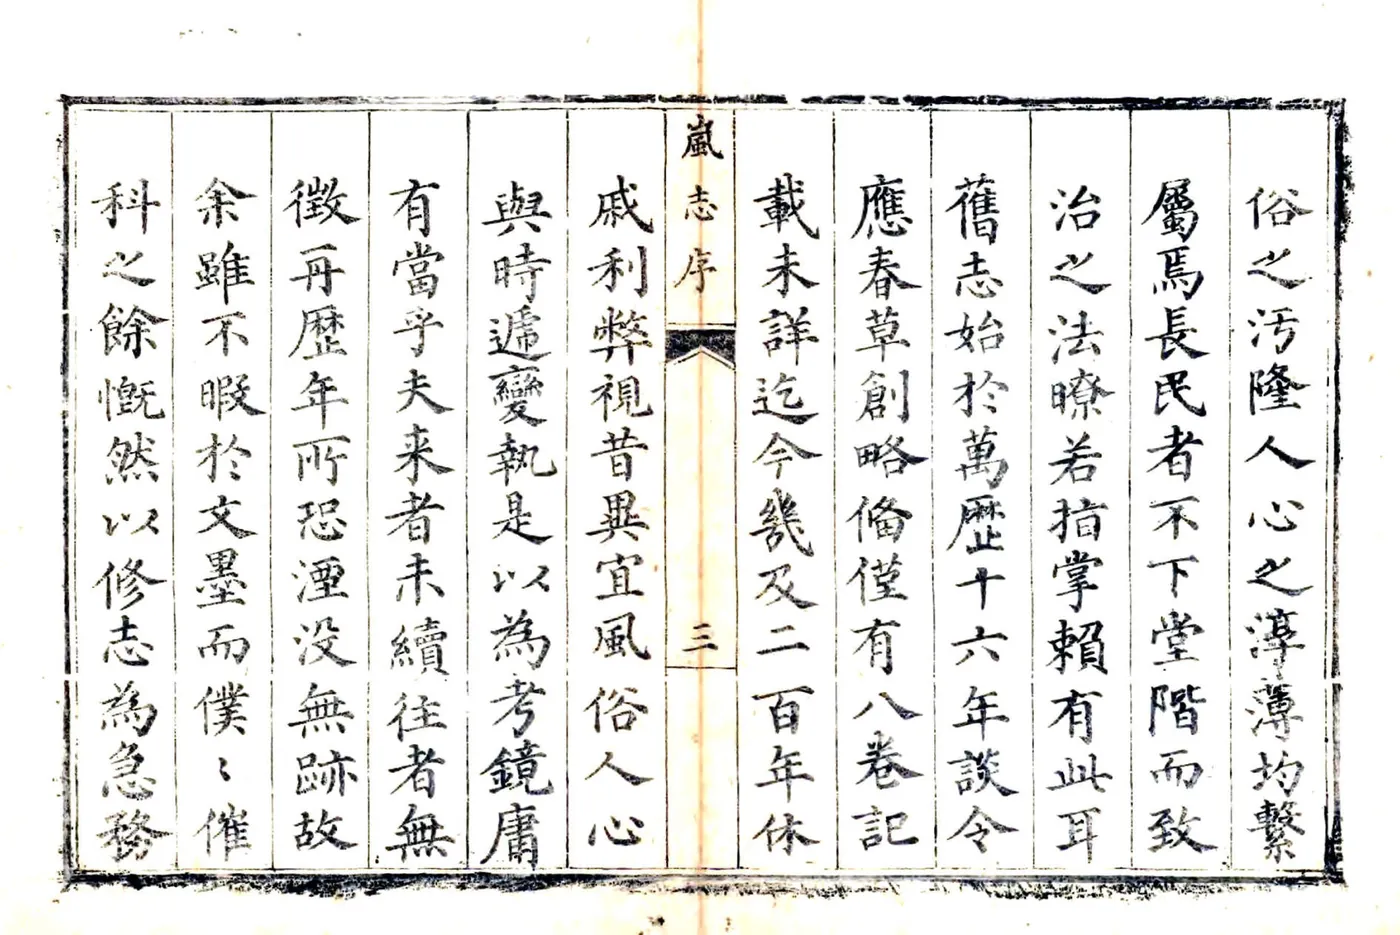 俗之污隆人心之淳薄均繫
屬焉長民者不下堂階而致
治之法瞭若指掌賴有此耳
舊志始於萬歷十六年談令
應春草創略俻僅有八卷記
載未詳迄今幾及二百年休
嵐志序 三
戚利弊視昔異宜風俗人心
與時遞變執是以為考鏡庸
有當乎夫来者未續往者無
徵再歷年所恐湮没無跡故
余雖不暇於文墨而僕〻催
科之餘慨然以修志為急務